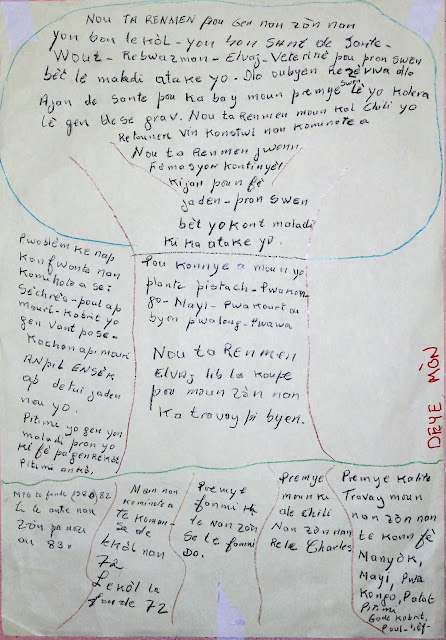 Nou ta Renmen pou Gen nan zòn nan
yon bon lekòl - yon bon sant de sante -
Wout - Rebwazman - Elvaj - Veterinè pou pran swen
bèt lè maladi atake yo - Dlo oubyen Rezèvwa dlo
Ajan de sante pou ka bay moun premye swen lè yo kolera
lè gen blese grav. Nou ta Renmen moun kal Chili yo
Retounen vin konstwi nan kominote a
Nou ta Renmen jwenn
Fòmasyon kontinyèl
Kijan pou n fè
jaden - pran swen
bèt yo kont maladi
ki ka atake yo.
Pwoblèm ke nap
konfwonte nan
kominote a se:
Séchrès - poul ap
mouri - kabrit yo
gen vant pose -
Kochon ap mouri
Anpil ensèk
ap detwi jaden
nou yo.
Pitimi yo gen yon
maladi pran yo
ki fè pa gen rekòt
Pitimi ankò.
Pou konnye a moun yo
plante pistach - Pwa kon-
go - Mayi - Pwa kourt ou
byen pwa long - Pwawa
Nou ta Renmen
Elvaj lib la koupe
pou moun zòn nan
ka travay pi byen.
DEYE MÒN
MPD te fonde 1980, 82
li te antre nan
zòn pa nou
an 83.
Moun nan
kominote a
te komanse
de
lekòl nan
72
Lekòl la
fonde 72
Premye
fanmi ki
te nan zòn
Se te fanmi
Do.
Premye
moun ki
ale Chili
Nan zòn nan
Rele Charles
Premye kalite
Travay moun
nan zòn nan
te konn fè
Manyòk,
Mayi, Pwa
Kongo, Patat
Pitimi
Gade Kabrit,
Poul - bèf -